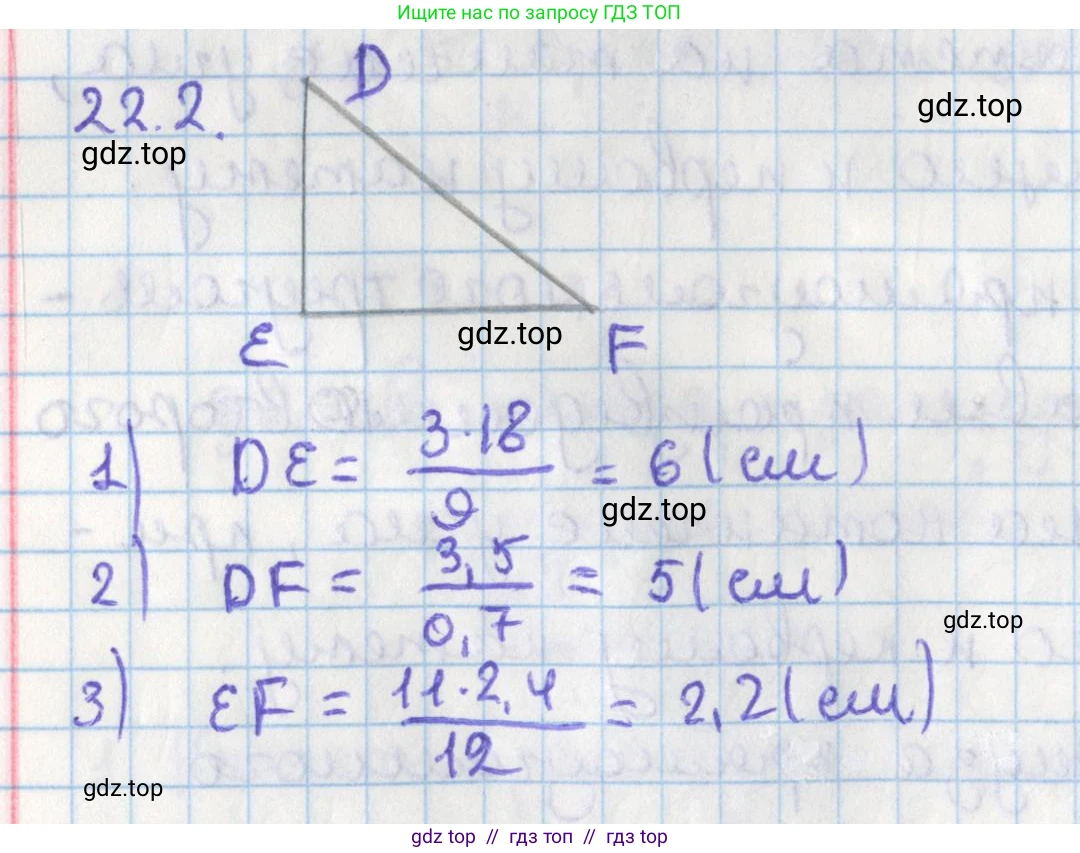 Ищите нас по запросу ГДЗ ТОП
D
22.2.
gdz.top
gdz.top
E
gdz.top
F
1) DE = 3·18 / 9 = 6 (см)
gdz.top
2) DF = 3,5 / 0,7 = 5 (см)
gdz.top
3) EF = 11·2,4 / 12 = 2,2 (см)
gdz.top
gdz top // гдз топ // гдз top